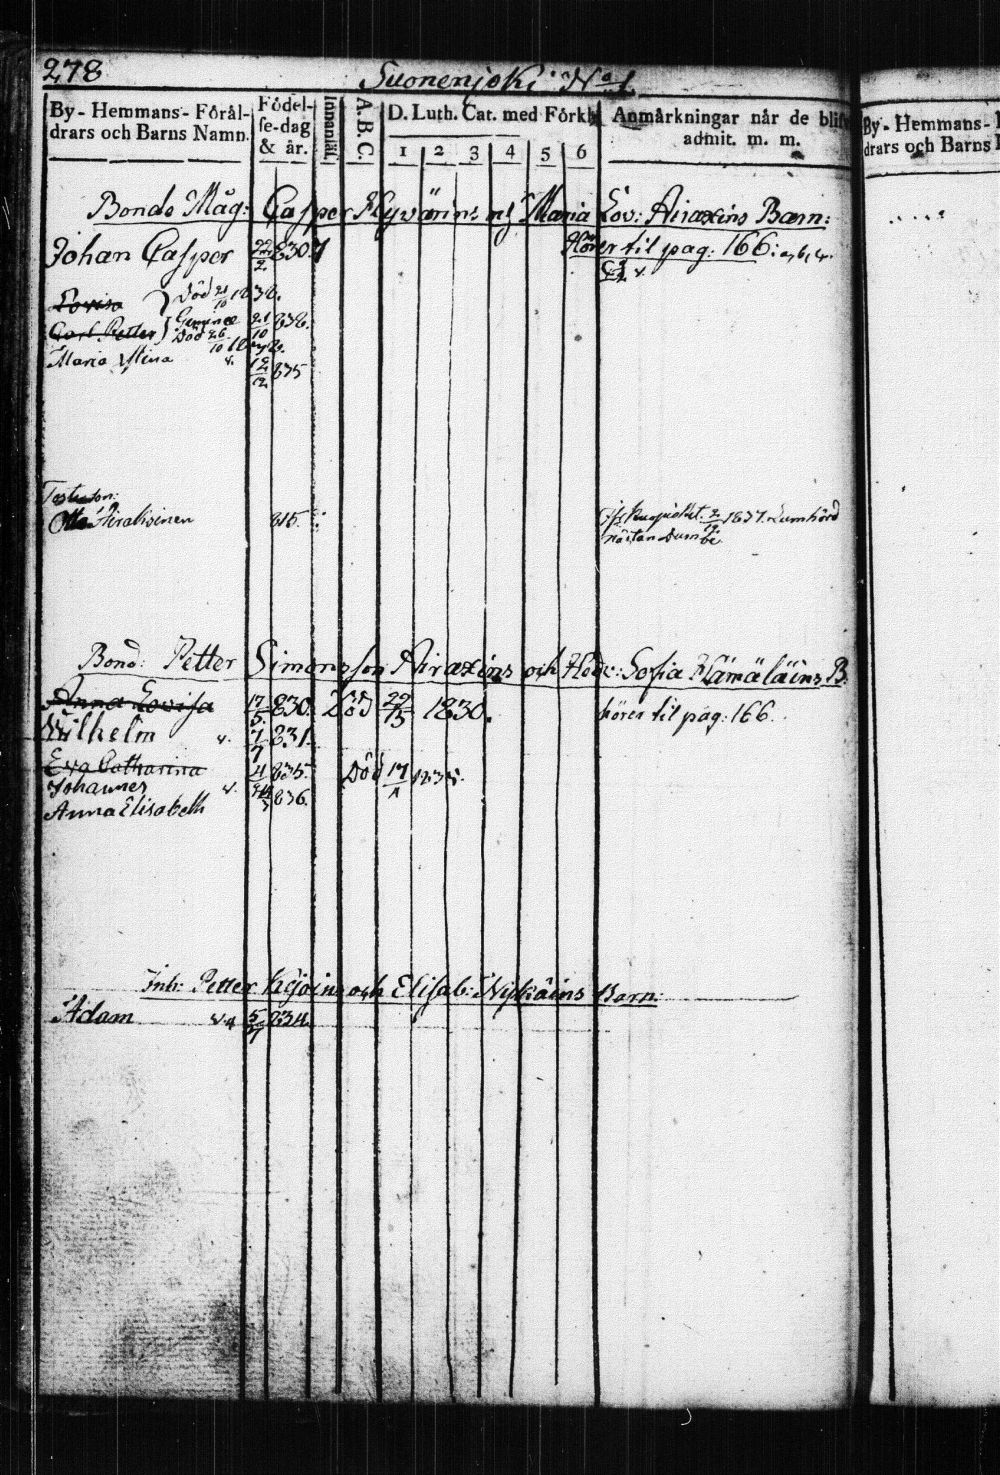 278
Suonenjoki No 1
By- Hemmans- Förål-
drars och Barns Namn.
Födel-
se-dag
& år.
Innanläs.
A.B.C.
D. Luth. Cat. med Förkl.
1 2 3 4 5 6
Anmärkningar når de blifv
admit. m. m.
Bonde Måg: Casper Hyvärins och Maria Lov: Airaxins Barn:
Johan Casper 22/2 830.
Hörer til pag: 166:
Lovisa Död 21/10 1838.
Carl Petter Geminae 21/10 838.
Död 26/10 1838.
Maria Stina 12/12 835
Otto Airaksinen 815.
1837.
nästan dumbe
Bond: Petter Simonsson Airaxins och Hedv: Sofia Hämäläins B:
Anna Lovisa 17/5 830. Död 1830.
hörer til pag: 166.
Wilhelm 7/7 831.
Eva Catharina 835. Död
Johannes 836.
Anna Elisabeth
Inh: Petter och Elisab: Barn:
Adam 5/7 834
By- Hemmans-
drars och Barns